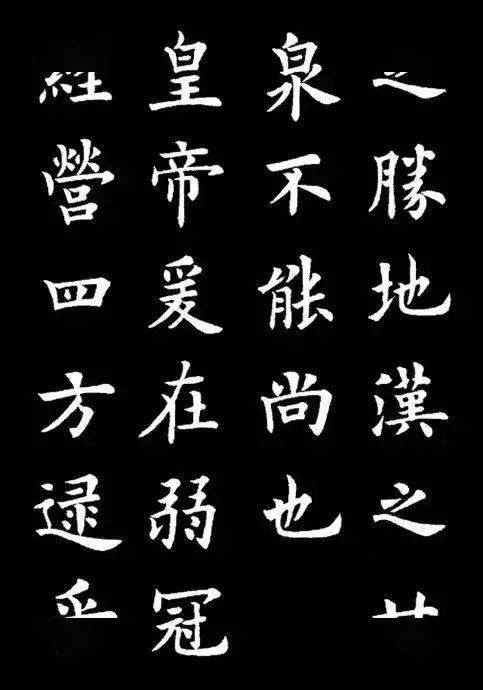 勝地漢之
泉不能尚也
皇帝爰在弱冠
經營四方逮乎